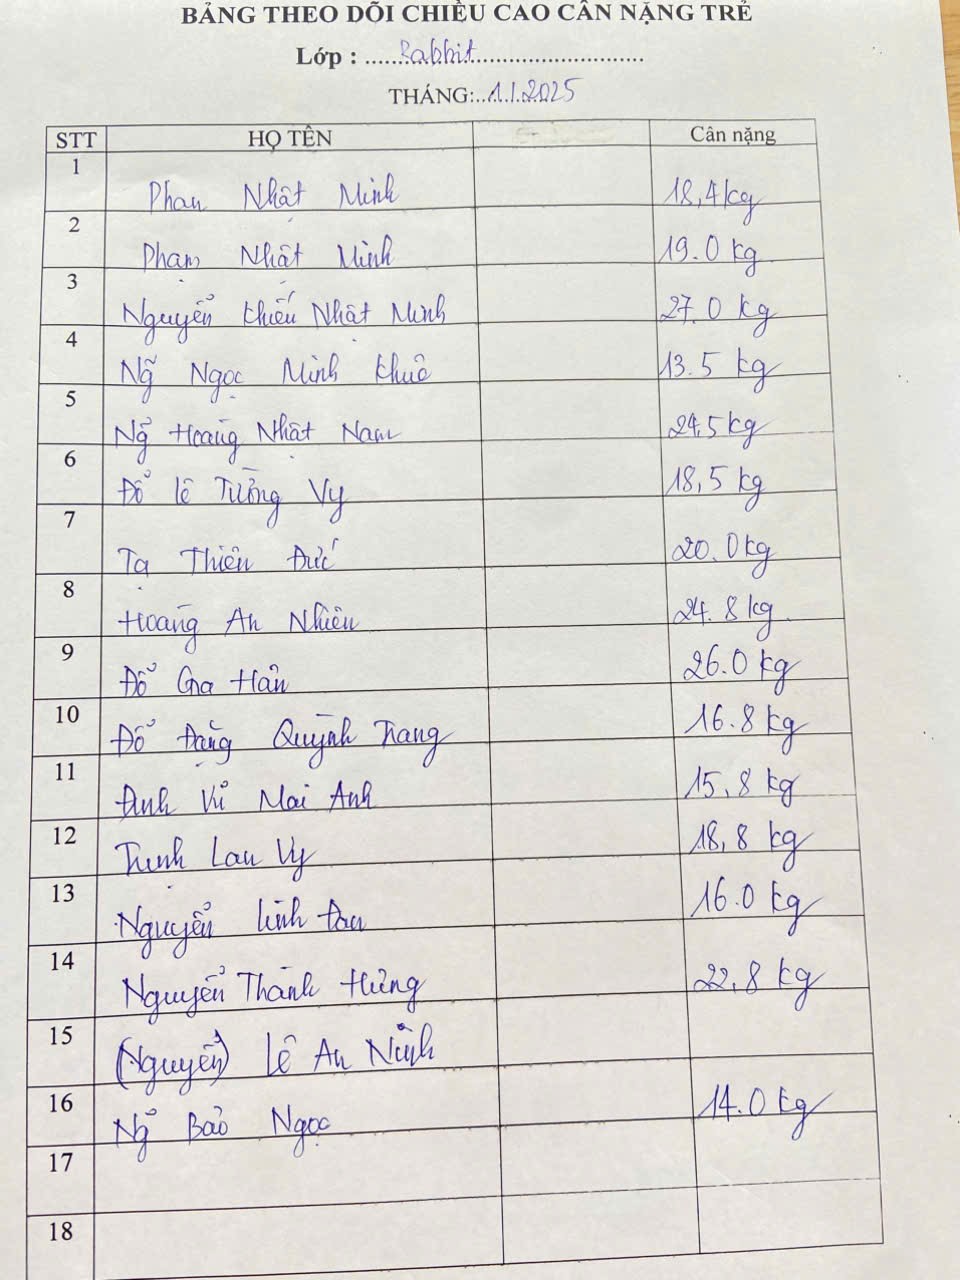 BẢNG THEO DÕI CHIỀU CAO CÂN NẶNG TRẺ
Lớp : Rabbit
THÁNG: 1.1.2025
STT HỌ TÊN Cân nặng
1 Phan Nhật Minh 18,4kg
2 Phạm Nhật Minh 19.0 kg
3 Nguyễn Khiếu Nhật Minh 27.0 kg
4 Ng̃ Ngọc Minh Khuê 13.5 kg
5 Ng̃ Hoàng Nhật Nam 24,5kg
6 Đỗ Lê Tường Vy 18,5 kg
7 Tạ Thiên Đức 20.0kg
8 Hoàng An Nhiên 24.8kg
9 Đỗ Gia Hân 26.0 kg
10 Đỗ Đặng Quỳnh Trang 16.8 kg
11 Đinh Vũ Mai Anh 15,8 kg
12 Trịnh Lan Vy 18,8 kg
13 Nguyễn Linh Đan 16.0 kg
14 Nguyễn Thành Hưng 22,8 kg
15 (Nguyễn) Lê An Ninh
16 Ng̃ Bảo Ngọc 14.0 kg
17
18